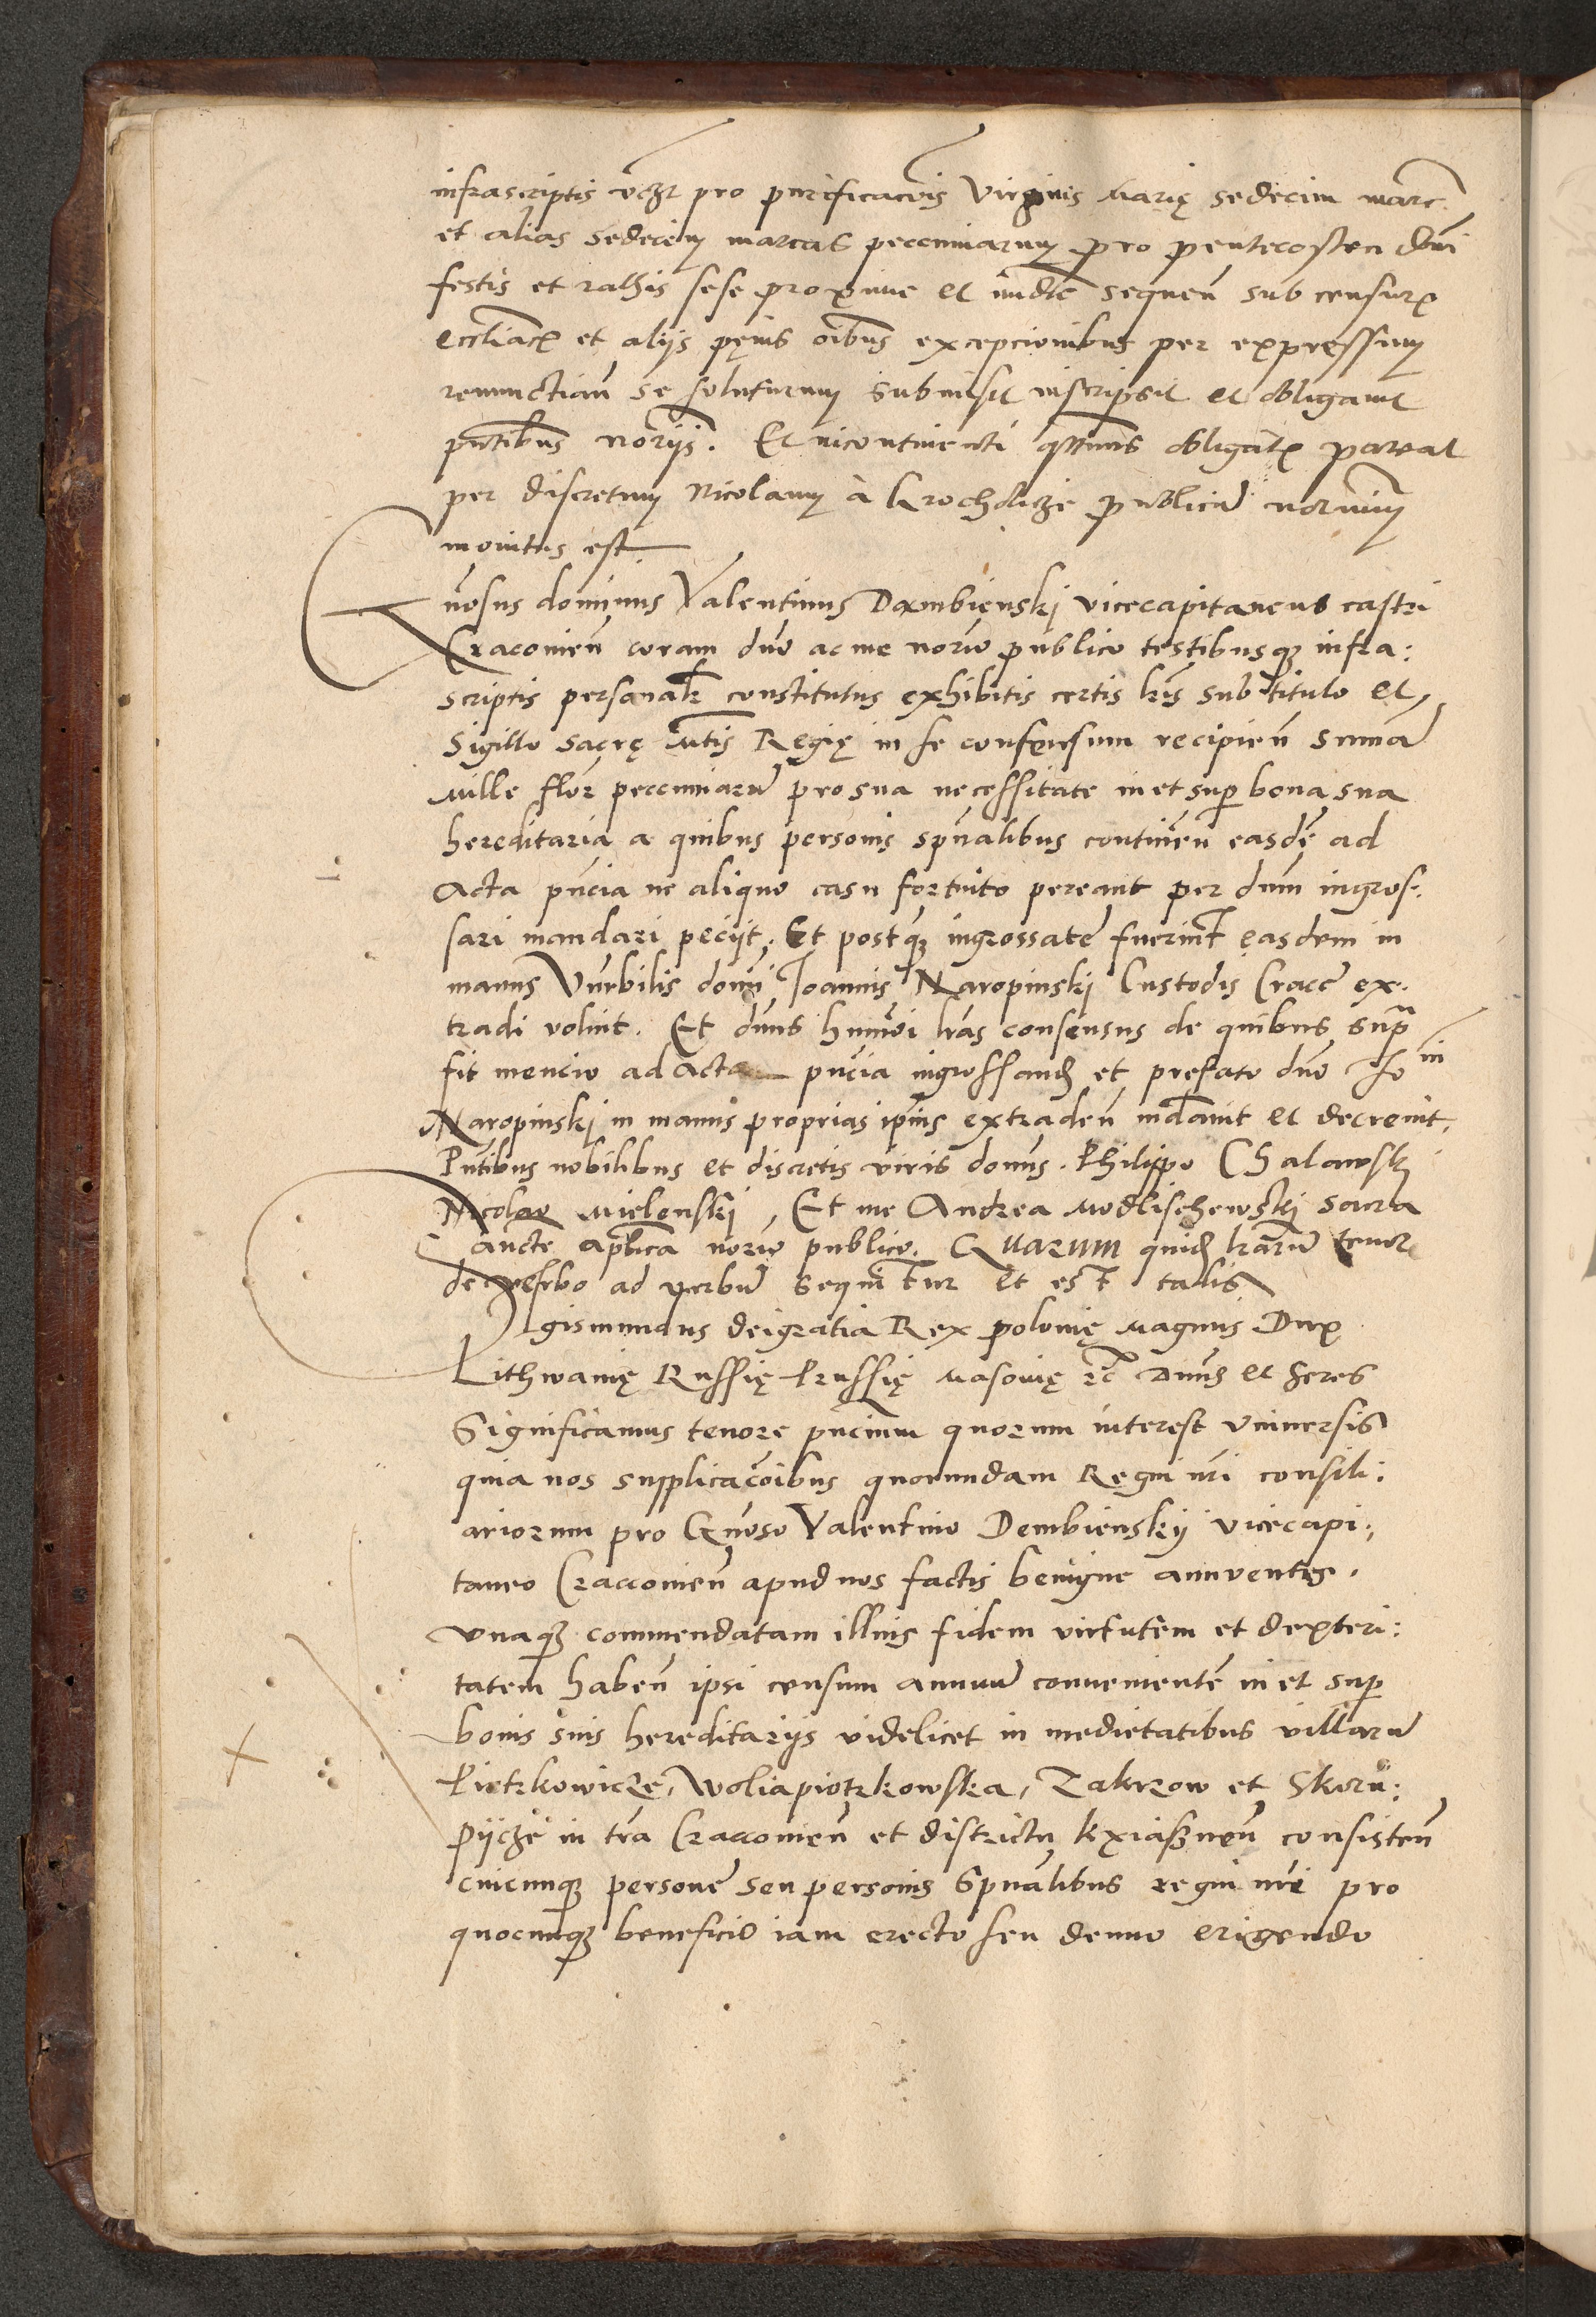 infrascriptis vczt pro purificacois Virginis Marię sedecim marc
et alias sedecim marcas pecuniarum pro pentecosten dni
festis et rathis sese proxime et imdte sequen sub censuris
eccliacis et alijs pęnis oibus excepcionibus per expressum
renunctian se soluturum submisit inscripsit et obligauit
pntibus norijs. Et incontinenti obligatis pareat
per discretum Nicolaum à Krocholicze publicu norium
monitus est
Gnosus dominus Valentinus Dambięnskj vicecapitaneus castri
Cracouien coram dno ac me norio publico testibusq infra:
scriptis personalr constitutus exhibitis certis lris sub titulo et
Sigillo sacrę Mtis Regię in se consensum recipien suma
Mille flor pecuniaru pro sua necessitate in et sup bona sua
hereditaria a quibus personis spualibus continen easde ad
Acta pncia ne aliquo casu fortuito pereant per dnm ingros:
sari mandari peciit. Et postq ingrossate fuerint easdem in
manus Vnrbilis domi Joannis Naropinskj Custodis Cracc ex:
tradi voluit. Et dnus humoi lras consensus de quibus sup
fit mencio ad Acta pncia ingrossand et prefato dno Jo ni
Naropinskj in manus proprias ipius extraden mdauit et decreuit.
Pntibus nobilibus et discretis viris domis. Philippo Chalawskj
Nicolao Mielenskj, Et me Andrea Modlischewskj sacra
aucte aplica norio publico. Quarum quid lraru tenor
de verbo ad verbu sequitur et est talis
Sigismundus dei gratia Rex Polonię Magnus Dux
Lithwanię Russię Prussię Masouię etc Dnus et heres
Significamus tenore pncium quorum interest Vniuersis
quia nos supplicacoibus quorundam Regni nri consili:
ariorum pro Gnoso Valentino Dembienskij vicecapi:
taneo Cracouien apud nos factis benigne annuentes.
vnaq commendatam illius fidem virtutem et dexteri:
tatem haben ipsi censum annuu conuenientem in et sup
bonis suis hereditarijs videlicet in medietatibus villaru
Pietrkowicze, Wolia piotrkowska, Zakrzow et Skoru:
pijcze in tra Cracouien et districtu kxiaßnen consisten
cuicunq persone seu personis Spualibus regni nri pro
quocunq beneficio iam erecto seu denuo erigendo